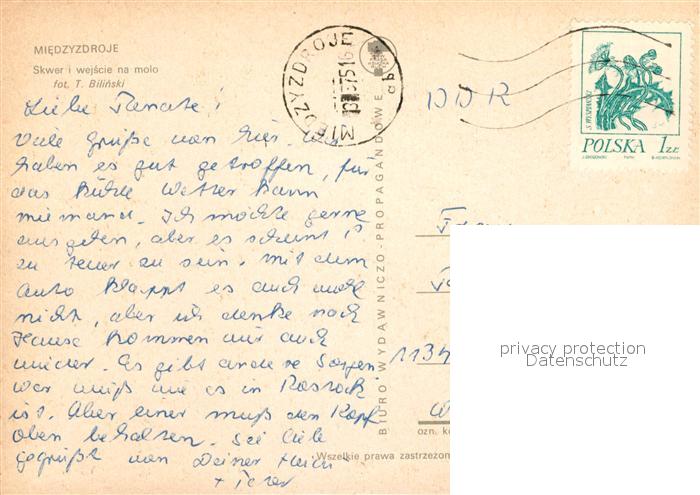 MIĘDZYZDROJE
Skwer i wejście na molo
fot. T. Biliński
Liebe Renate!
Viele Grüße von hier. Wir
haben es gut getroffen, für
das kühle Wetter kann
niemand. Ich möchte gerne
ausgehen, aber es scheint
zu teuer zu sein. mit dem
Auto klappt es auch noch
nicht, aber ich denke nach
Hause kommen wir auch
wieder. Es gibt andere Sorgen
wer weiß wie es in Rostock
ist. Aber einer muß den Kopf
oben behalten. Sei liebe
gegrüßt von Deiner
+ Peter
MIĘDZYZDROJE
75 16
BIURO WYDAWNICZO-PROPAGANDOWE
DDR
1134
Wszelkie prawa zastrzeżon
ozn. k
S. WYSPIAŃSKI
POLSKA 1 ZŁ
privacy protection
Datenschutz